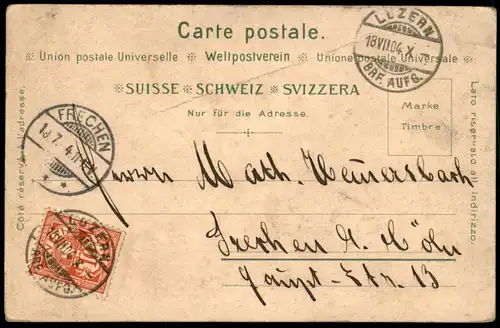 Carte postale.
Union postale Universelle Weltpostverein Unione postale Universale
SUISSE SCHWEIZ SVIZZERA
Nur für die Adresse.
Marke
Timbre
Côté réservé à l'adresse.
Lato riservato all' indirizzo.
LUZERN
18 VII.04. X
BRF. AUFG.
FRECHEN
LUZERN
BRF. AUFG.
Herrn Math. Heuersbach
Frechen b. Köln
Haupt-Str. 13